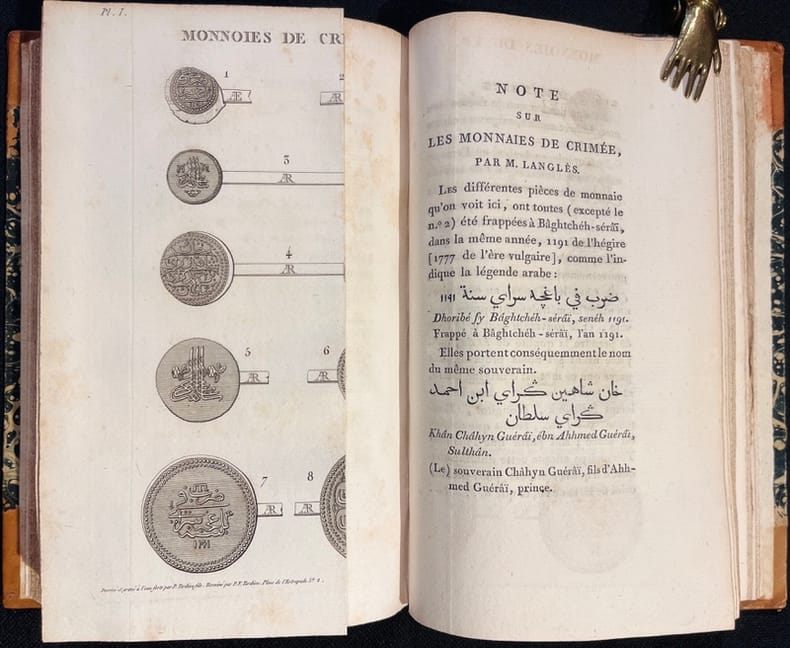 Pl. I.
MONNOIES DE CRI
1
Æ
2
AR
3
AR
4
AR
5
AR
6
AR
7
AR
8
AR
NOTE
SUR
LES MONNAIES DE CRIMÉE,
PAR M. LANGLÈS.
LES différentes pièces de monnaie
qu'on voit ici, ont toutes (excepté le
n.º 2) été frappées à Bâghtchéh-séráï,
dans la même année, 1191 de l'hégire
[1777 de l'ère vulgaire], comme l'in-
dique la légende arabe :
ضرب في باغچه سراي سنة ١١٩١
Dhoribé fy Bâghtchéh-séráï, senéh 1191.
Frappé à Bâghtchéh-séráï, l'an 1191.
Elles portent conséquemment le nom
du même souverain.
خان شاهين ڪراي ابن احمد
ڪراي سلطان
Khân Châhyn Guéráï, ébn Ahhmed Guéráï,
Sulthán.
(Le) souverain Châhyn Guéráï, fils d'Ahh-
med Guéráï, prince.